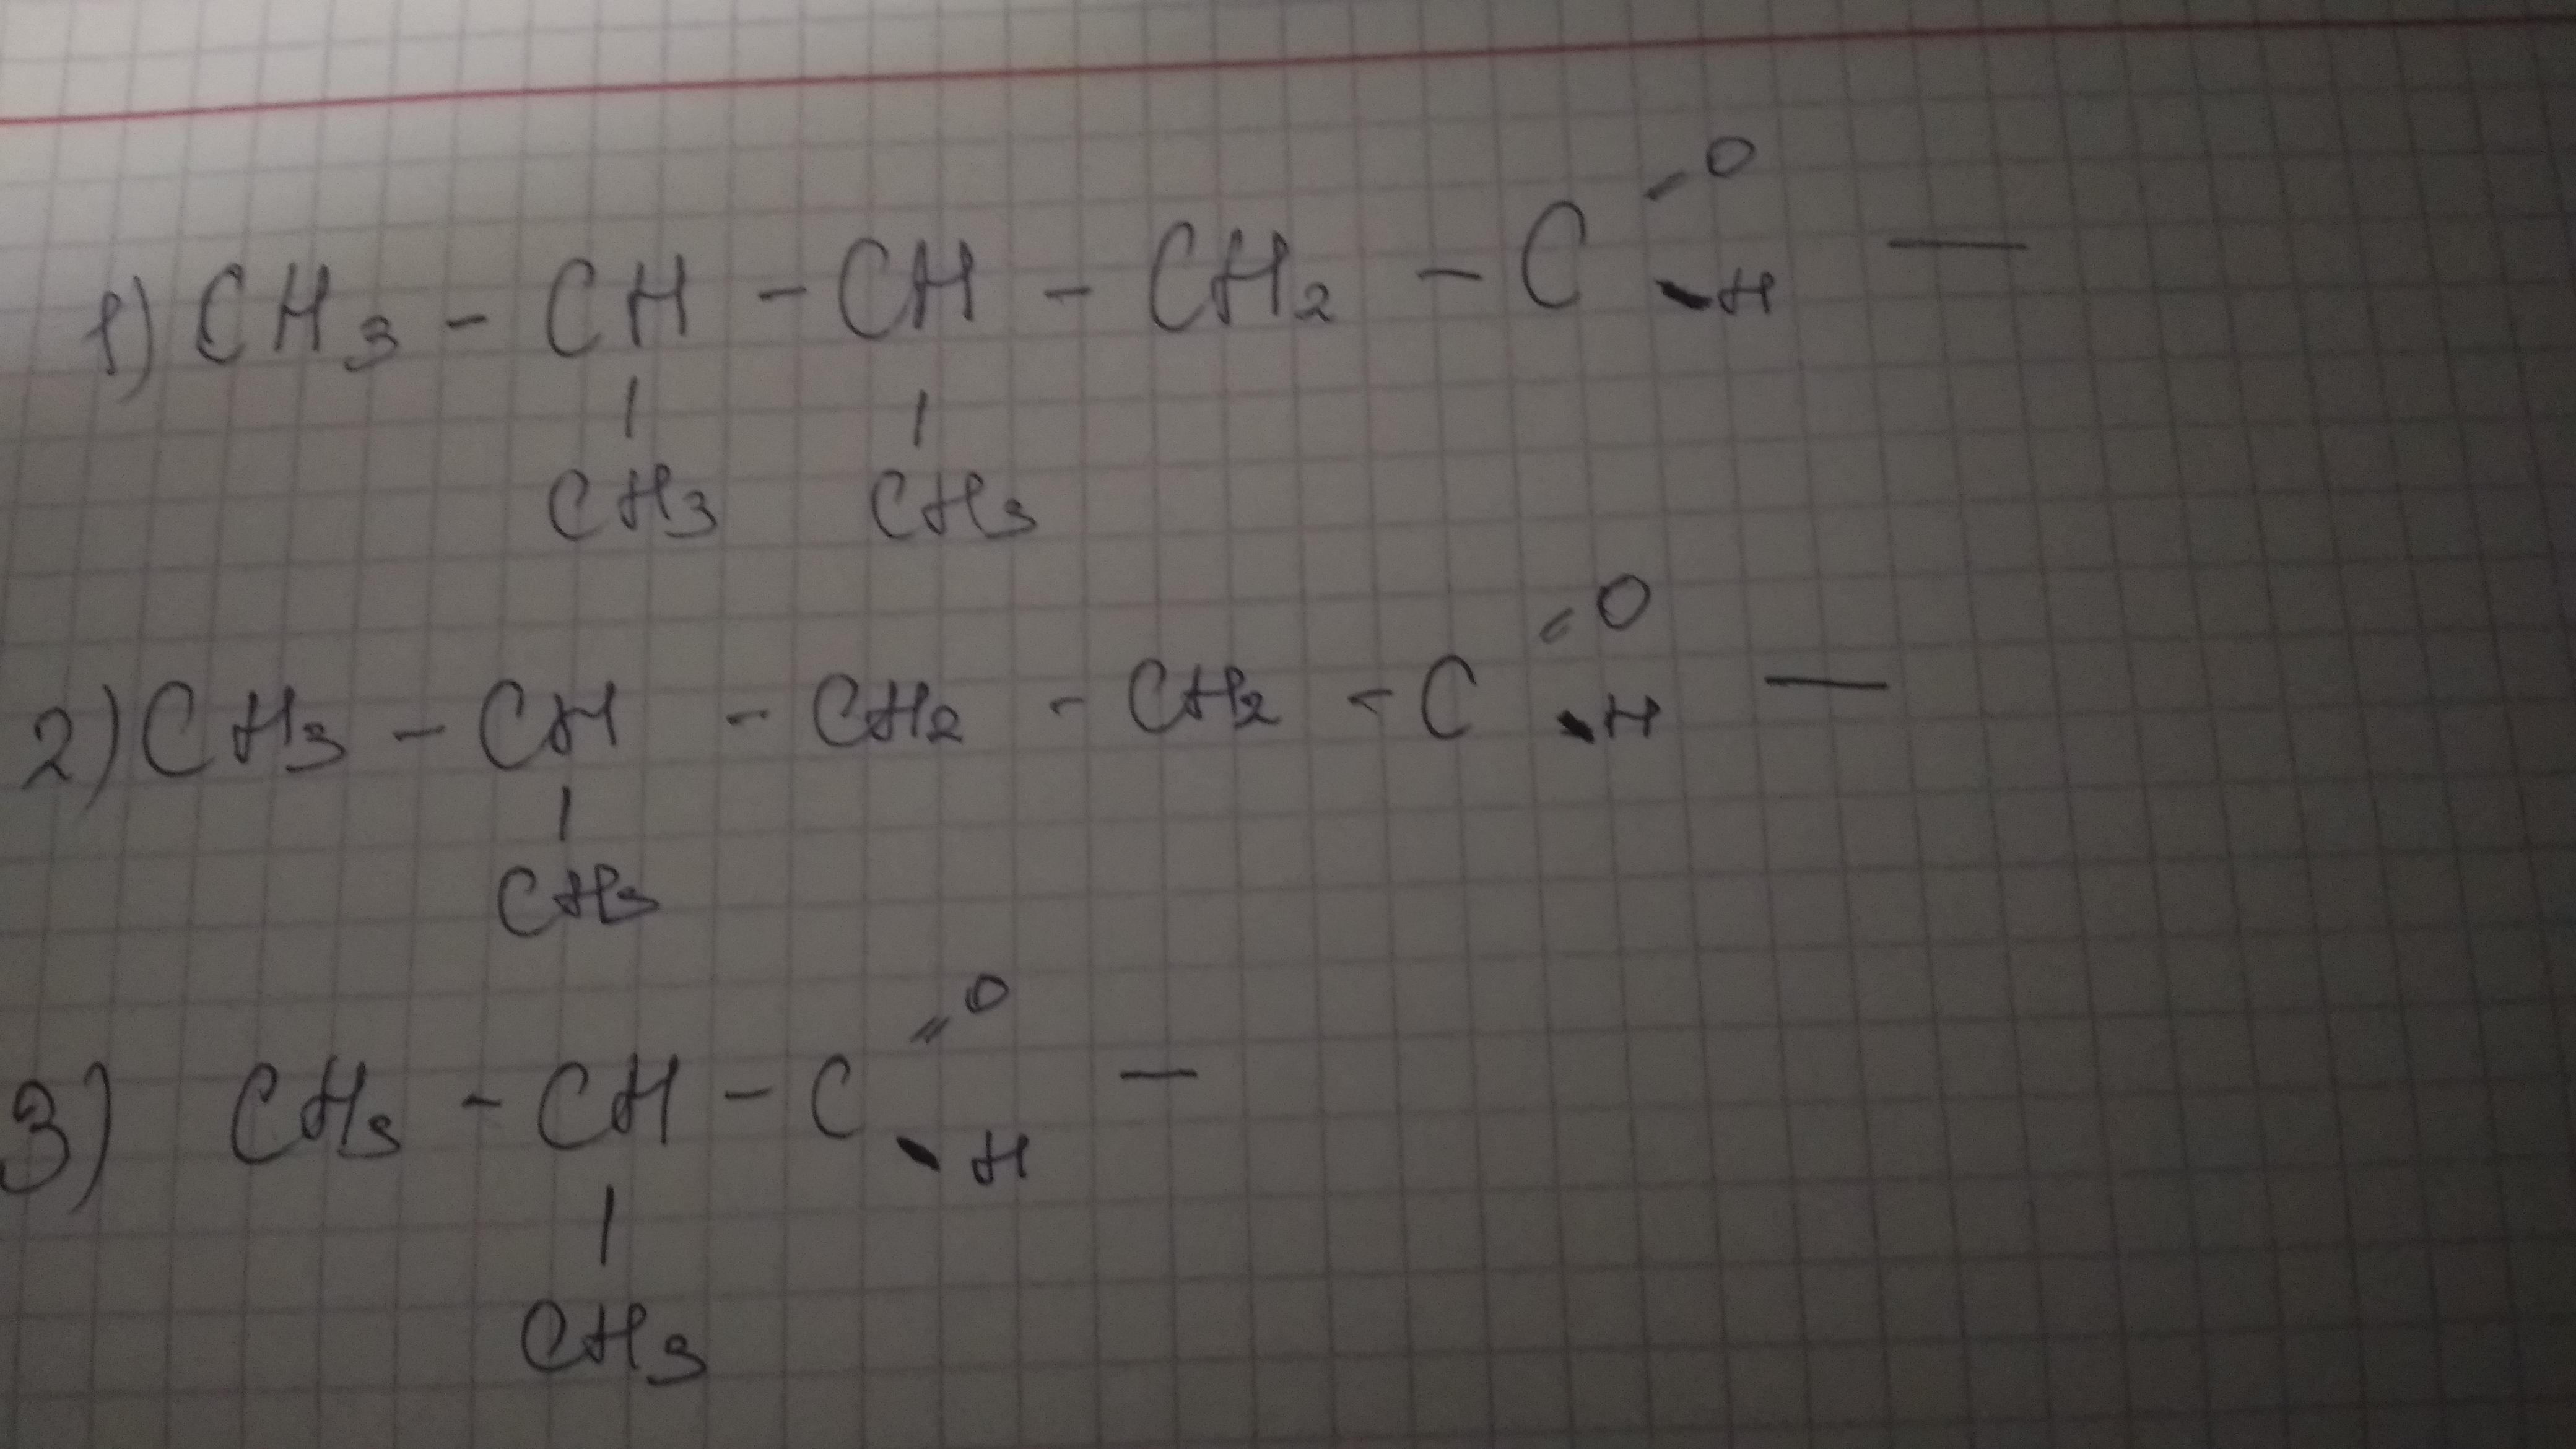 =O
1) CH3 - CH - CH - CH2 - C -H —
CH3 CH3
=O
2) CH3 - CH - CH2 - CH2 - C -H —
CH3
=O
3) CH3 - CH - C -H —
CH3